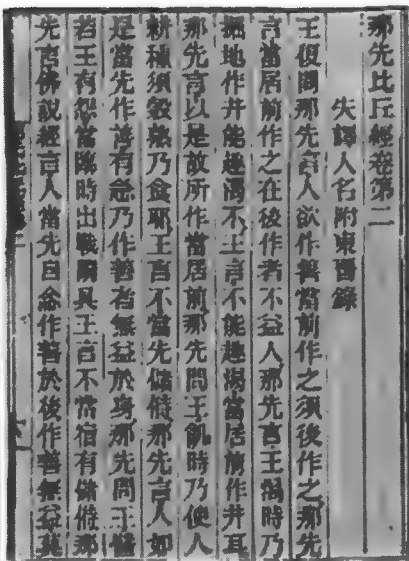 那先比丘經卷第二
失譯人名附東晉錄
王復問那先言人欲作善當前作之須後作之那先
言當居前作之在後作者不益人那先言王渴時乃
掘地作井能趣渴不王言不能趣渴當居前作井耳
那先言以是故所作當居前那先問王飢時乃使人
耕種須穀熟乃食耶王言不當先儲偫那先言人如
是當先作善有急乃作善者無益於身那先問王譬
若王有怨當臨時出戰鬪具王言不當宿有儲偫那
先言佛說經言人當先自念作善於後作善無益莫